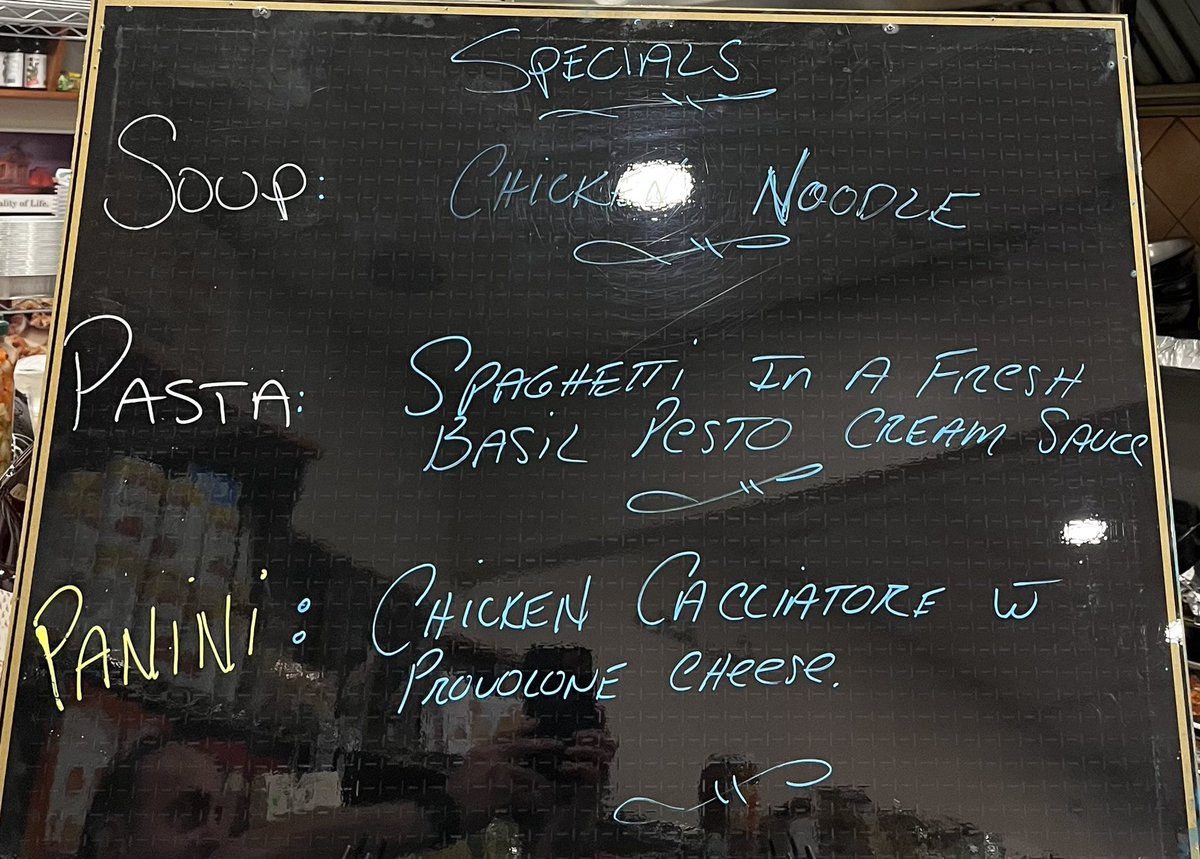 SPECIALS
SOUP: CHICKEN NOODLE
ality of Life.
PASTA: SPAGHETTi In A FResH
BASiL PesTO CREAM SAUce
PANiNi: CHiCKEN CACCiATORE w̅
PROVOLONE CHeese.